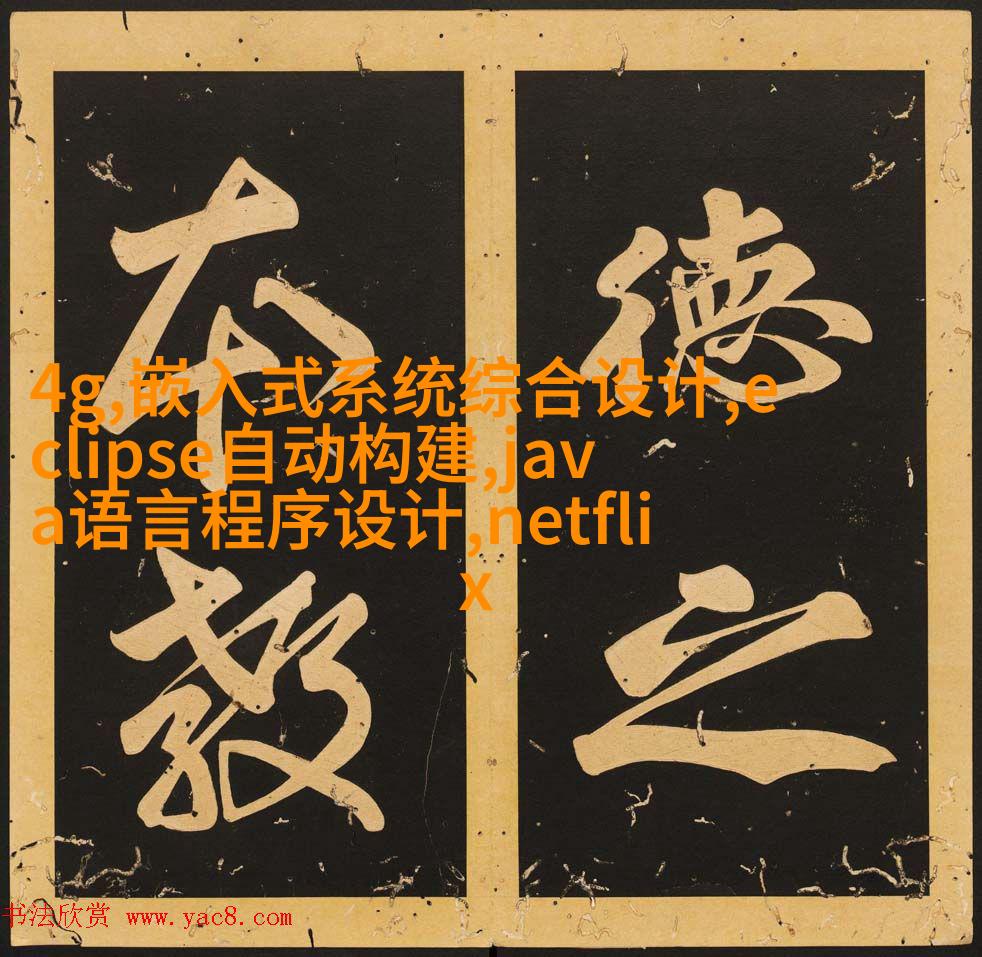 德之
本教
4g,嵌入式系统综合设计,e
clipse自动构建,jav
a语言程序设计,netfli
x
书法欣赏 www.yac8.com